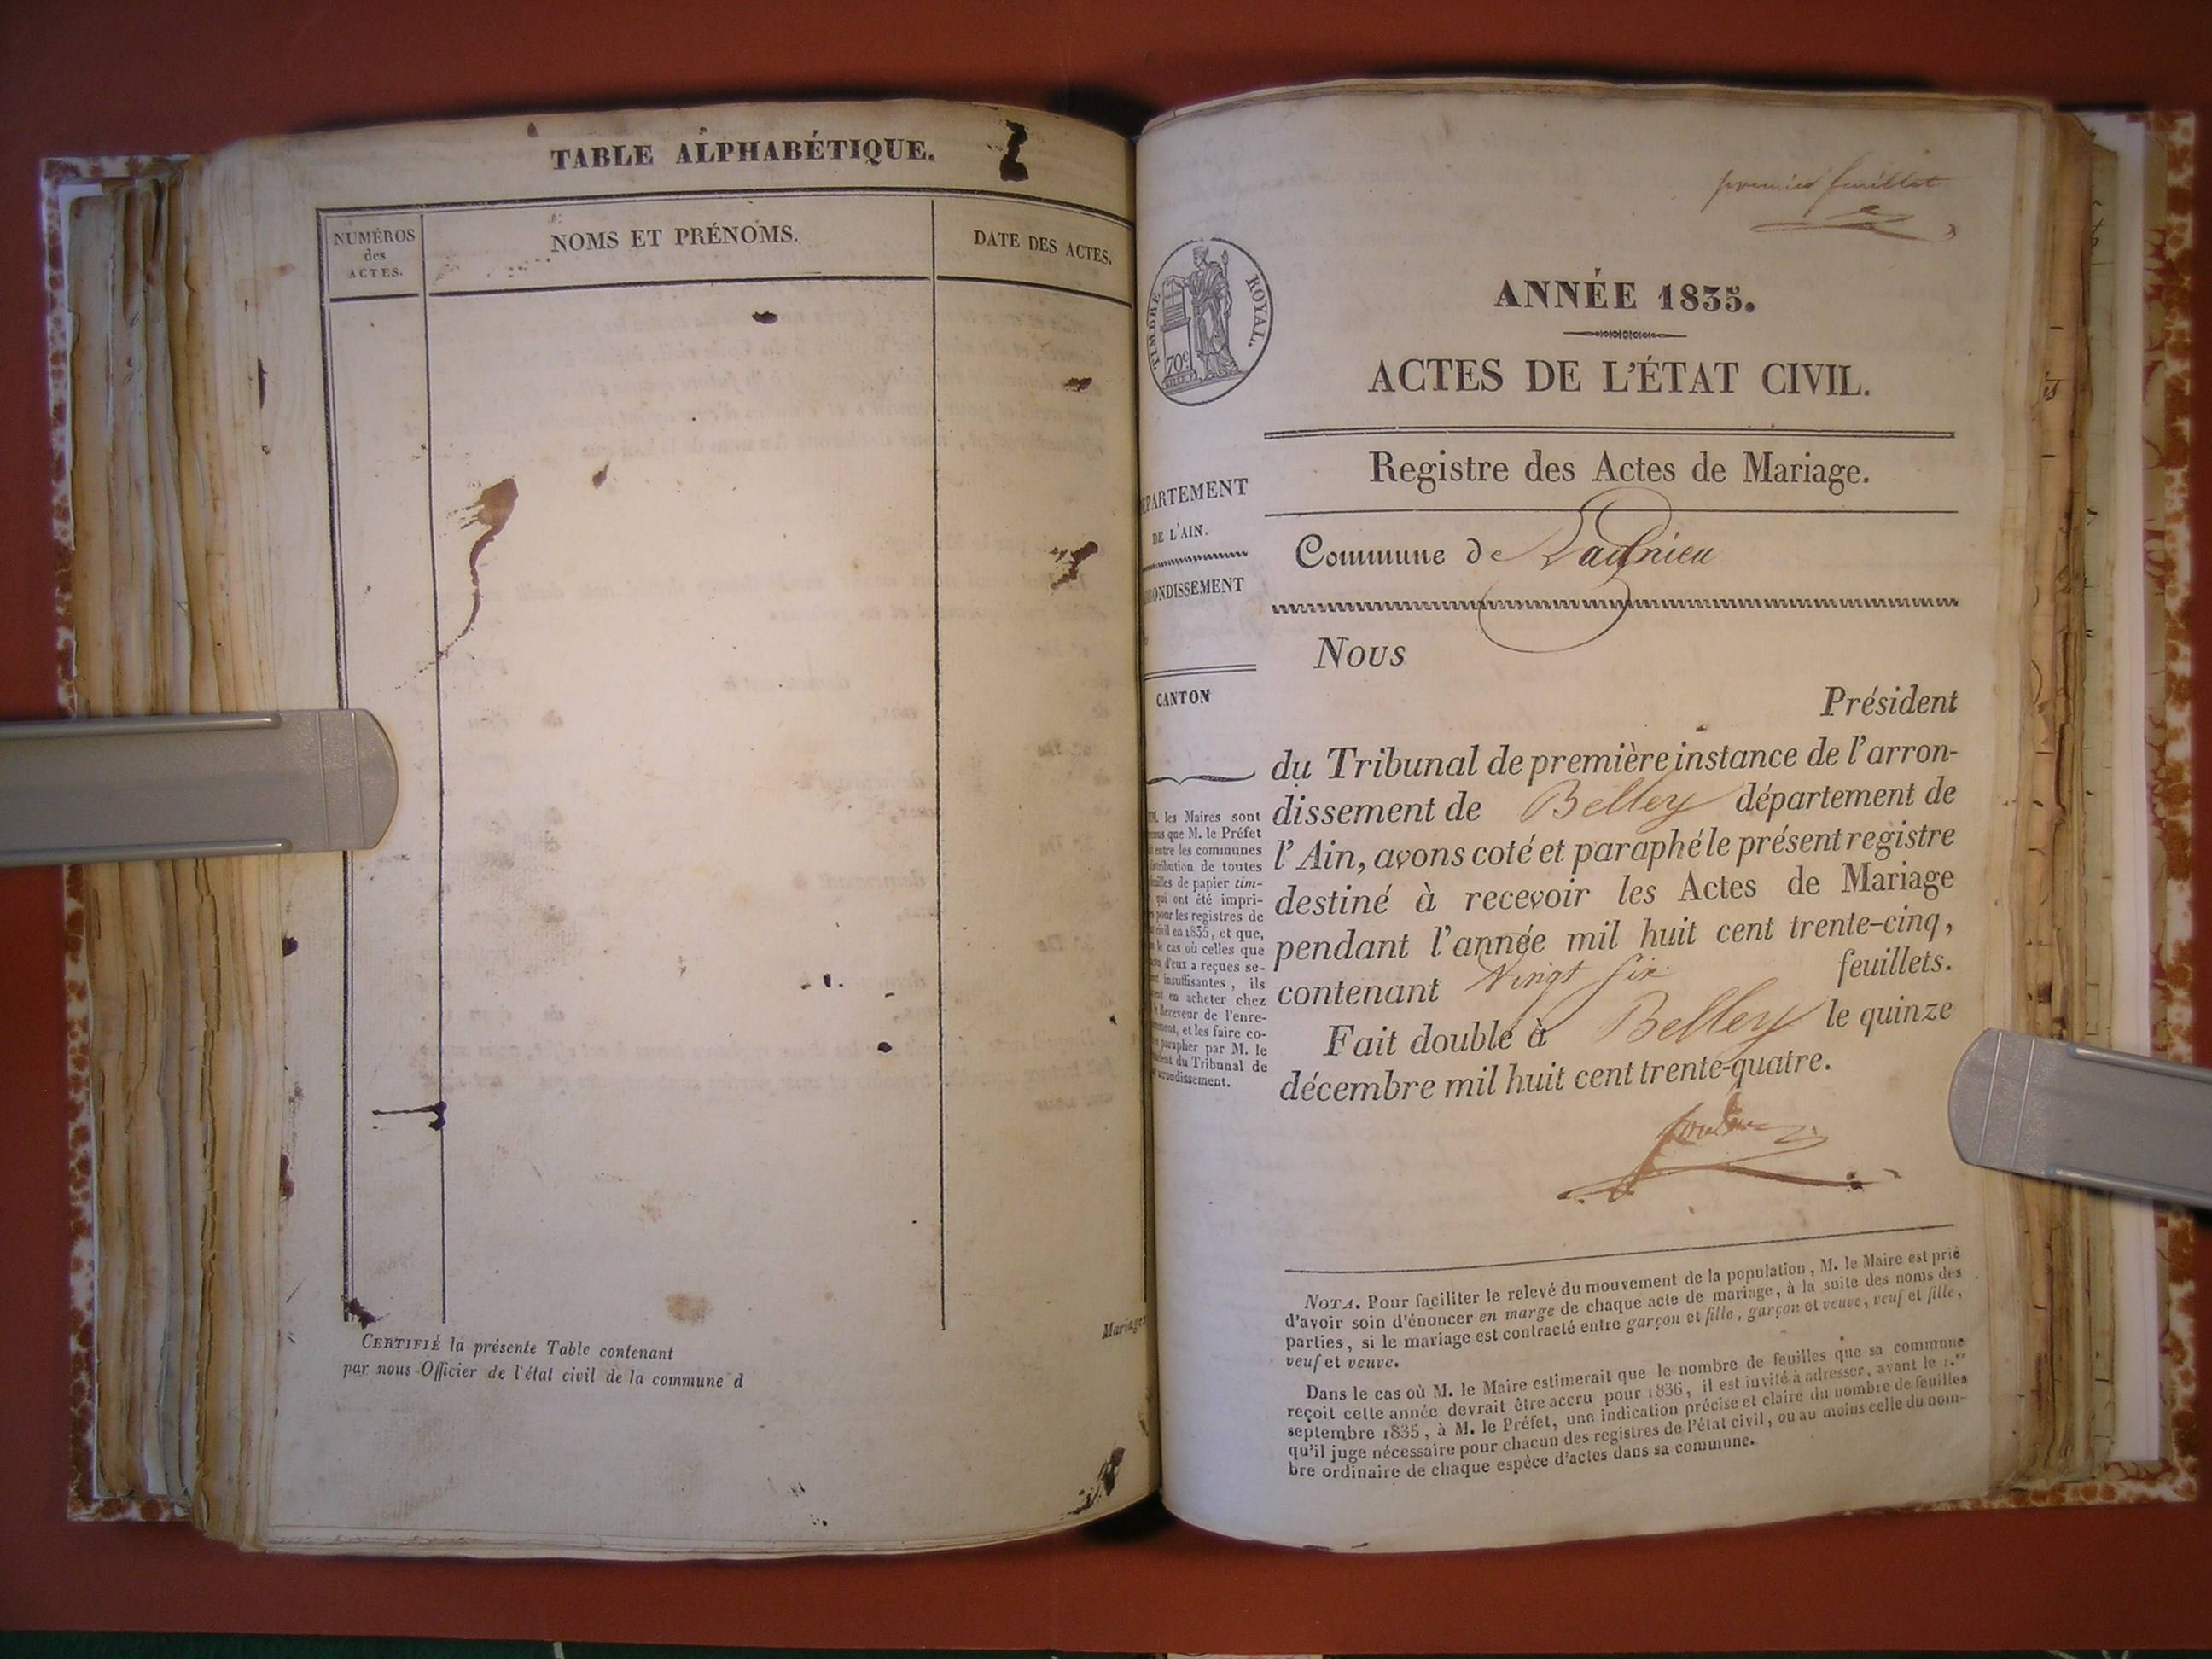 TABLE ALPHABÉTIQUE.
NUMÉROS
des
ACTES.
NOMS ET PRÉNOMS.
DATE DES ACTES.
CERTIFIÉ la présente Table contenant
par nous Officier de l'état civil de la commune d
Mariages
premier feuillet
TIMBRE ROYAL.
70c
ANNÉE 1835.
ACTES DE L'ÉTAT CIVIL.
Registre des Actes de Mariage.
Commune de Lagnieu
DÉPARTEMENT
DE L'AIN.
ARRONDISSEMENT
CANTON
MM. les Maires sont
que M. le Préfet
entre les communes
distribution de toutes
feuilles de papier tim-
qui ont été impri-
pour les registres de
civil en 1835, et que,
le cas où celles que
d'eux a reçues se-
insuffisantes, ils
en acheter chez
Receveur de l'enre-
et les faire co-
parapher par M. le
du Tribunal de
arrondissement.
Nous
Président
du Tribunal de première instance de l'arron-
dissement de Belley département de
l'Ain, avons coté et paraphé le présent registre
destiné à recevoir les Actes de Mariage
pendant l'année mil huit cent trente-cinq,
contenant vingt six feuillets.
Fait double à Belley le quinze
décembre mil huit cent trente-quatre.
NOTA. Pour faciliter le relevé du mouvement de la population, M. le Maire est prié
d'avoir soin d'énoncer en marge de chaque acte de mariage, à la suite des noms des
parties, si le mariage est contracté entre garçon et fille, garçon et veuve, veuf et fille,
veuf et veuve.
Dans le cas où M. le Maire estimerait que le nombre de feuilles que sa commune
reçoit cette année devrait être accru pour 1836, il est invité à adresser, avant le 1.er
septembre 1835, à M. le Préfet, une indication précise et claire du nombre de feuilles
qu'il juge nécessaire pour chacun des registres de l'état civil, ou au moins celle du nom-
bre ordinaire de chaque espèce d'actes dans sa commune.